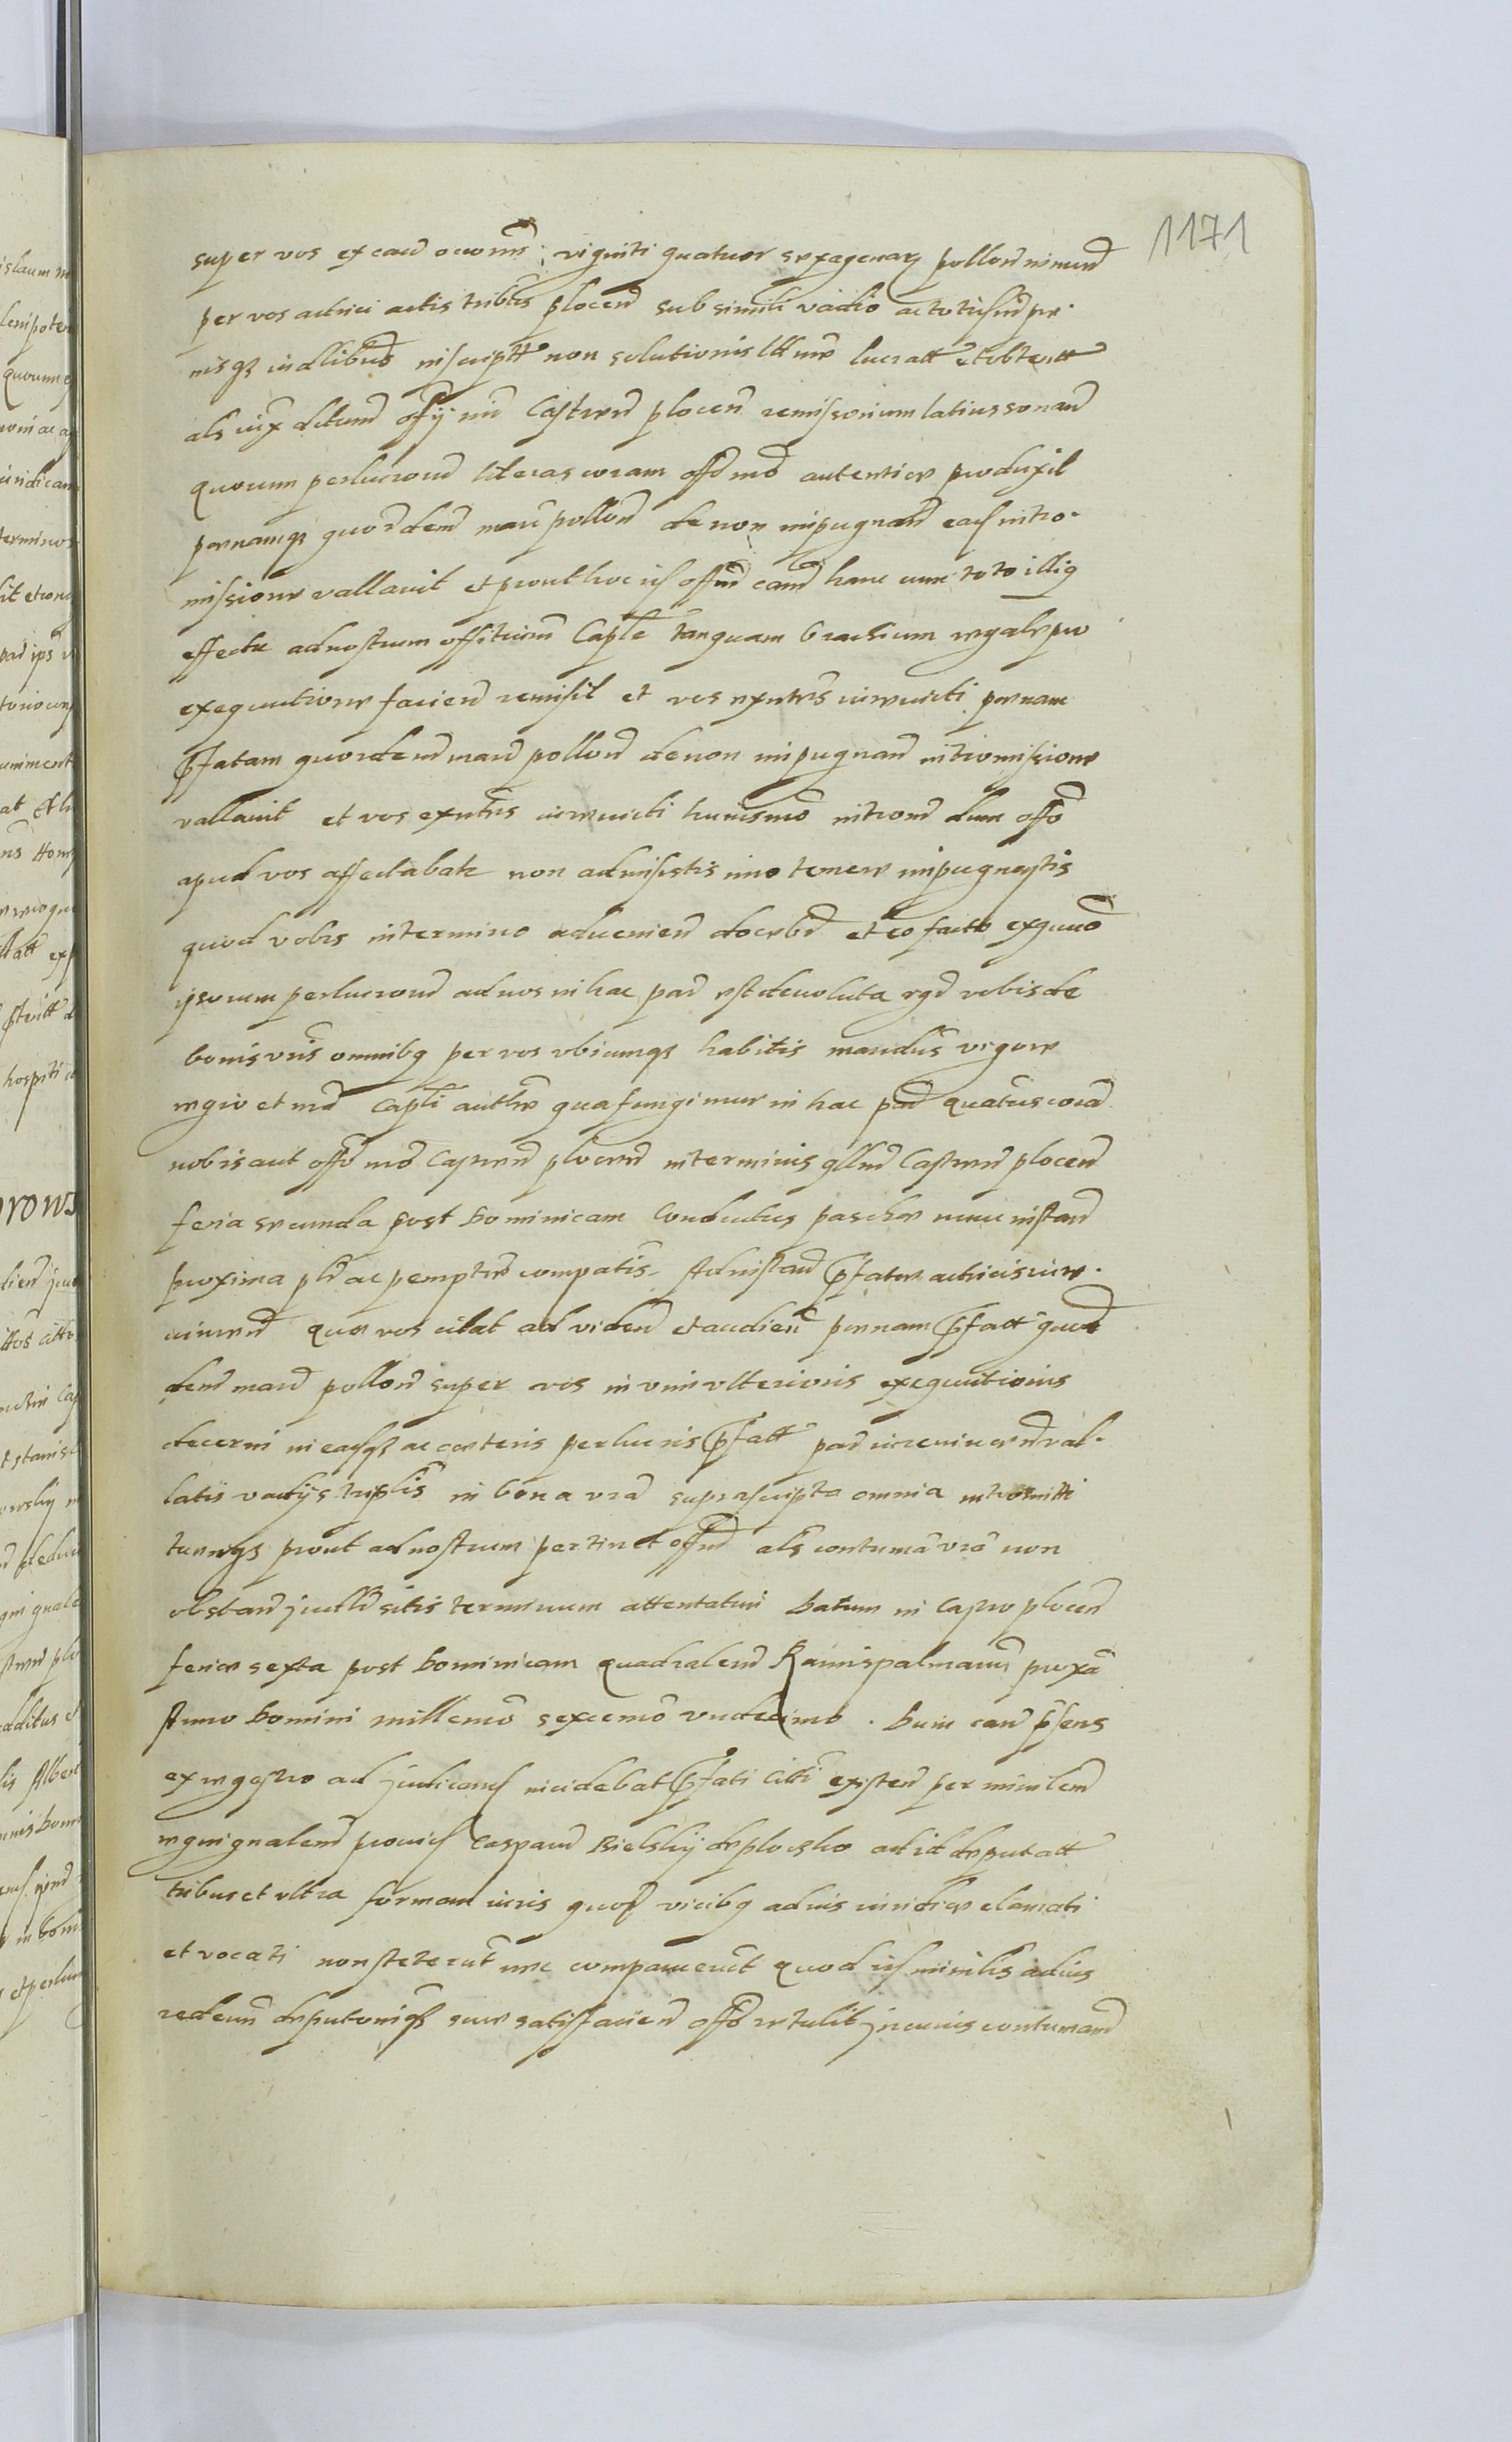 1171
super vos ex caus occonis viginti quatuor sexagenarz pollon numer
per vos actrici actis tribus plocen sub simili vadio ac totius pe-
nisqz indlibus inscriptt non solutionis lttime lucratt et obtentt
als iux dctum offy nri Castren plocen remissorium latius sonan
quorum perlucrorum literas coram offo nro autentice produxit
poenamqz quordem mar pollon de non impugnan eas intro-
missione vallavit et prout hoc is offm cam hanc cum toto illig
effectu ad nostrum offitium Caple tanquam brachium regale pro
exequutione facien remisit et vos exntes convicti poenam
pfatam quordem mar pollon de non impugnan intromissione
vallavit et vos exntes convicti huiusmo introm dum offo
apud vos affectabatr non admisistis imo temere impugnastis
quod vobis in termino advenien docebr et eo facto exquuo
ipsorum perlucrorum ad nos in hac par est devoluta rgd vobis de
bonis vris omnibq per vos ubicumqz habitis mandus vigore
regio et nra Capli authte qua fungimur in hac par quatus coram
nobis aut offo nro Castren plocen in terminis gllm Castren plocen
feria secunda post Dominicam Conductus paschae nunc instan
proxima plr ac pempte compatis Ad instan pfatae actricis iure-
vincen quae vos citat ad viden et audien poenam pfatt quor
dem mar pollon super vos in vim ulterioris exequutionis
decerni in easqz ac caeteris perlucris pfatt par iure vincen val-
latis vadijs triplis in bona vra suprascripta omnia intromitti
tenoreqz prout ad nostrum pertinet offm als contuma vra non
obstan jucllr sitis terminum attentaturi Datum in Castro plocen
feria sexta post Dominicam quadralem Ramispalmarum proxa
Anno Domini millemo sexcemo undecimo. Dum caus psens
ex regestro ad judicans incidebat pfati citti existen per minilem
regni gnalem provis Casparum Bielskij de plocsko ad id deputatt
tribus et ultra formam iuris quos vicibq ad ius iuridice clamati
et vocati non steterut nec comparuerut quod is minilis ad ius
redeun deputoniqz suae satisfacien offo retulit in cuius contumam